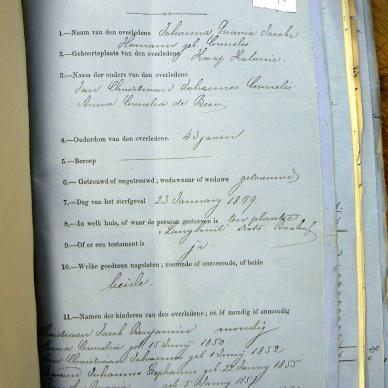 1.—Naam van den overledene Johanna Maria Jacoba
Homann geb Cornelis
2.—Geboorteplaats van den overledene Kaap Kolonie
3.—Namen der ouders van den overledene
Jan Christiaan Johannes Cornelis
Anna Cornelia de Beer
4.—Ouderdom van den overledene. 43 jaren
5.—Beroep
6.—Getrouwd of ongetrouwd; weduwnaar of weduwe getrouwd
7.—Dag van het sterfgeval 23 January 1869
8.—In welk huis, of waar de persoon gestorven is ten plaatse
9.—Of er een testament is ja
10.—Welke goederen nagelaten; roerende of onroerende, of beide
beide
11.—Namen der kinderen van den overledene; en óf mondig óf onmondig
Jacob Benjamin mondig
Cornelia geb 15 Junij 1850
Christiaan Johannes geb 1 Junij 1852
Johannes Stephanus geb 22 January 1855
geb 5